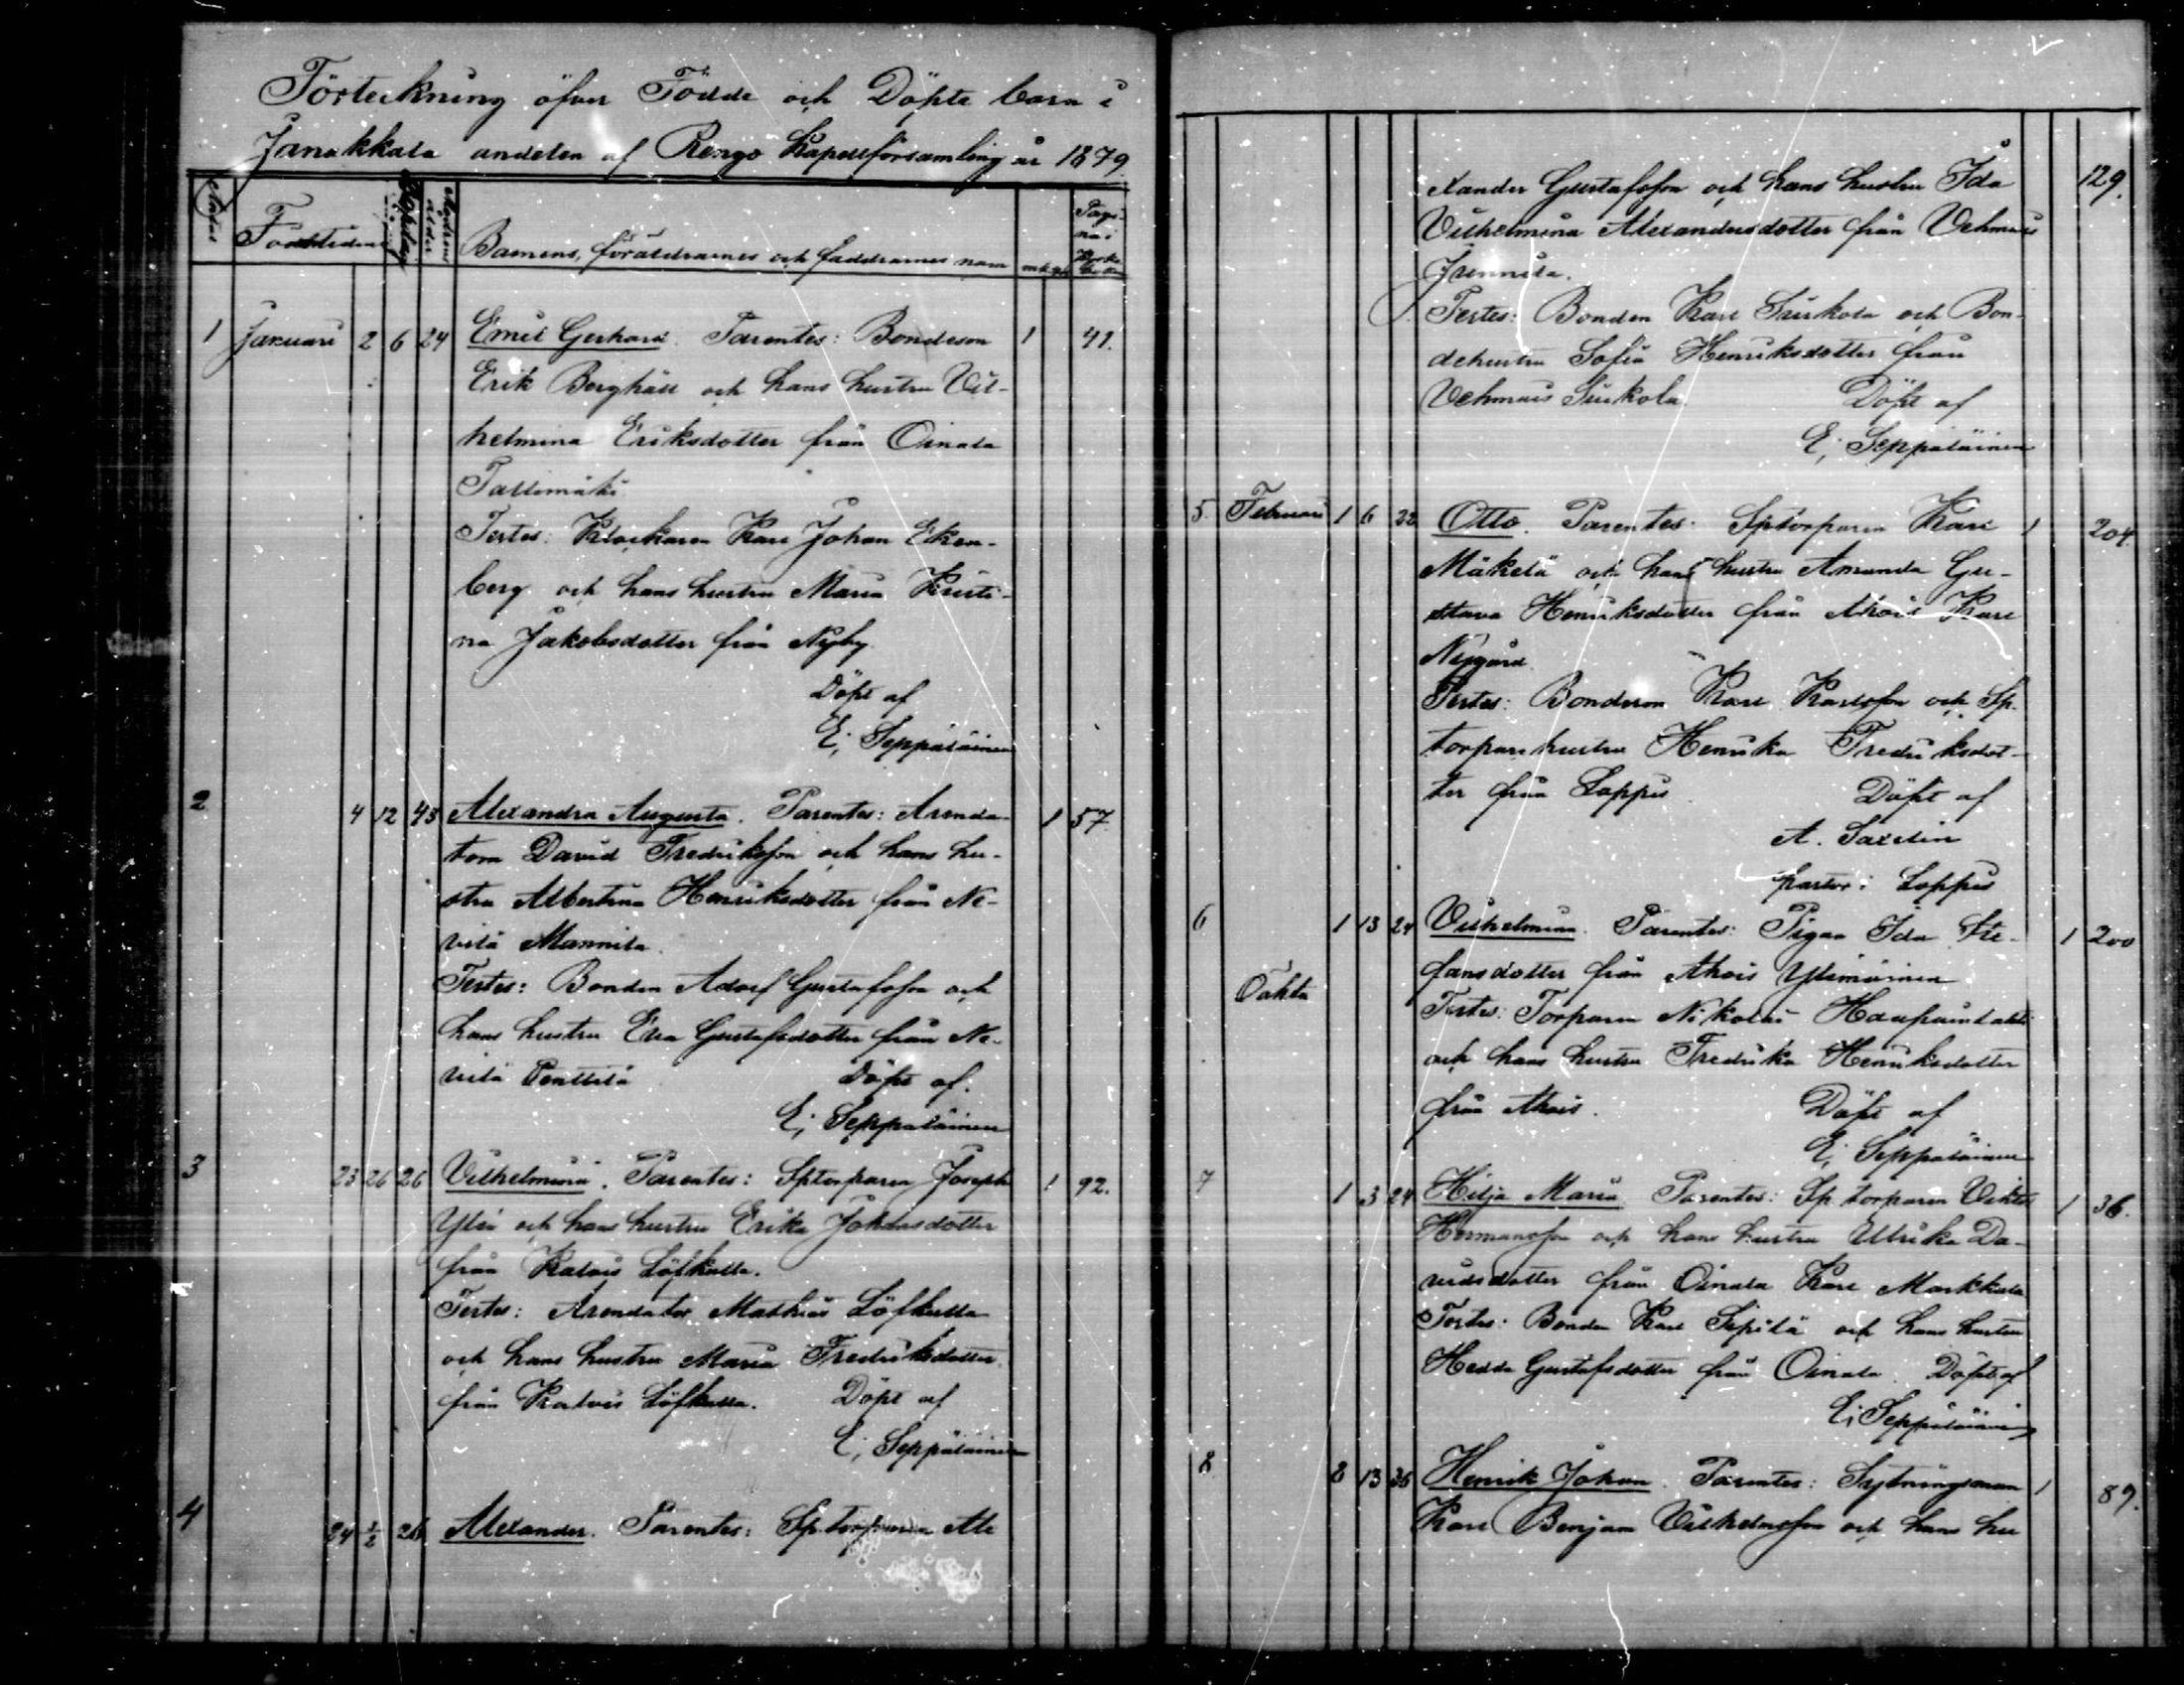 Förteckning öfver Födde och Döpte barn i
Janakkala andelen af Rengo Kapellförsamling år 1879.
Födelsetiden
Barnens, föräldrarnes och faddrarnes namn
1 Januari 2 6 24 Emil Gerhard. Parentes: Bondeson 1 41.
Erik Berghäll och hans hustru Vil-
helmina Eriksdotter från Oinala
Tallimäki
Testes: Klockaren Karl Johan Eken-
berg och hans hustru Maria Kristi-
na Jakobsdotter från Nyby.
Döpt af
E; Seppäläinen
2 4 12 43 Alexandra Augusta. Parentes: Arenda-
torn David Fredriksson och hans hu- 1 57.
stru Albertina Henriksdotter från Ne-
vilä Mannila.
Testes: Bonden Adolf Gustafsson och
hans hustru Eva Gustafsdotter från Ne-
vilä Penttilä Döpt af.
E; Seppäläinen
3 23 26 26 Vilhelmina. Parentes: Sptorparen Joseph 1 92.
Ylén och hans hustru Erika Johansdotter
från Kalvis Löfkulla.
Testes: Arendator Mathias Löfkulla
och hans hustru Maria Fredriksdotter
från Kalvis Löfkulla. Döpt af
E; Seppäläinen
4 24 1/2 26 Alexander. Parentes: Sp.torparen Ale
xander Gustafsson och hans hustru Ida 129.
Vilhelmina Alexandersdotter från Vehmais
Testes: Bonden Karl Suikola och Bon-
dehustru Sofia Henriksdotter från
Vehmais Suikola Döpt af
E; Seppäläinen
5. Februari 1 6 32 Otto. Parentes: Sptorparen Karl 1 204.
Mäkelä och hans hustru Amanda Gu-
stava Henriksdotter från Ahois Karl
Nygård
Testes: Bondeson Karl Karlsson och Sp.
torpare hustru Henrika Fredriksdot-
ter från Loppis Döpt af
A. Saxelin
pastor i Loppis
6 1 13 24 Vilhelmina. Parentes: Pigan Ida Ste- 1 200
fansdotter från Ahois Ylimäinen
Oäkta
Testes: Torparen Nikolai
och hans hustru Fredrika Henriksdotter
från Ahois. Döpt af
E; Seppäläinen
7 1 3 24 Hilja Maria Parentes: Sp torparen Viktor 1 36.
Hermansson och hans hustru Ulrika Da-
vidsdotter från Oinala Karl Markkula
Testes: Bonden Karl Sipilä och hans hustru
Hedda Gustafsdotter från Oinala. Döpt af
E; Seppäläinen
8 8 13 36 Henrik Johan. Parentes: Sytningsman 1 89.
Karl Benjam Vilhelmsson och hans hu